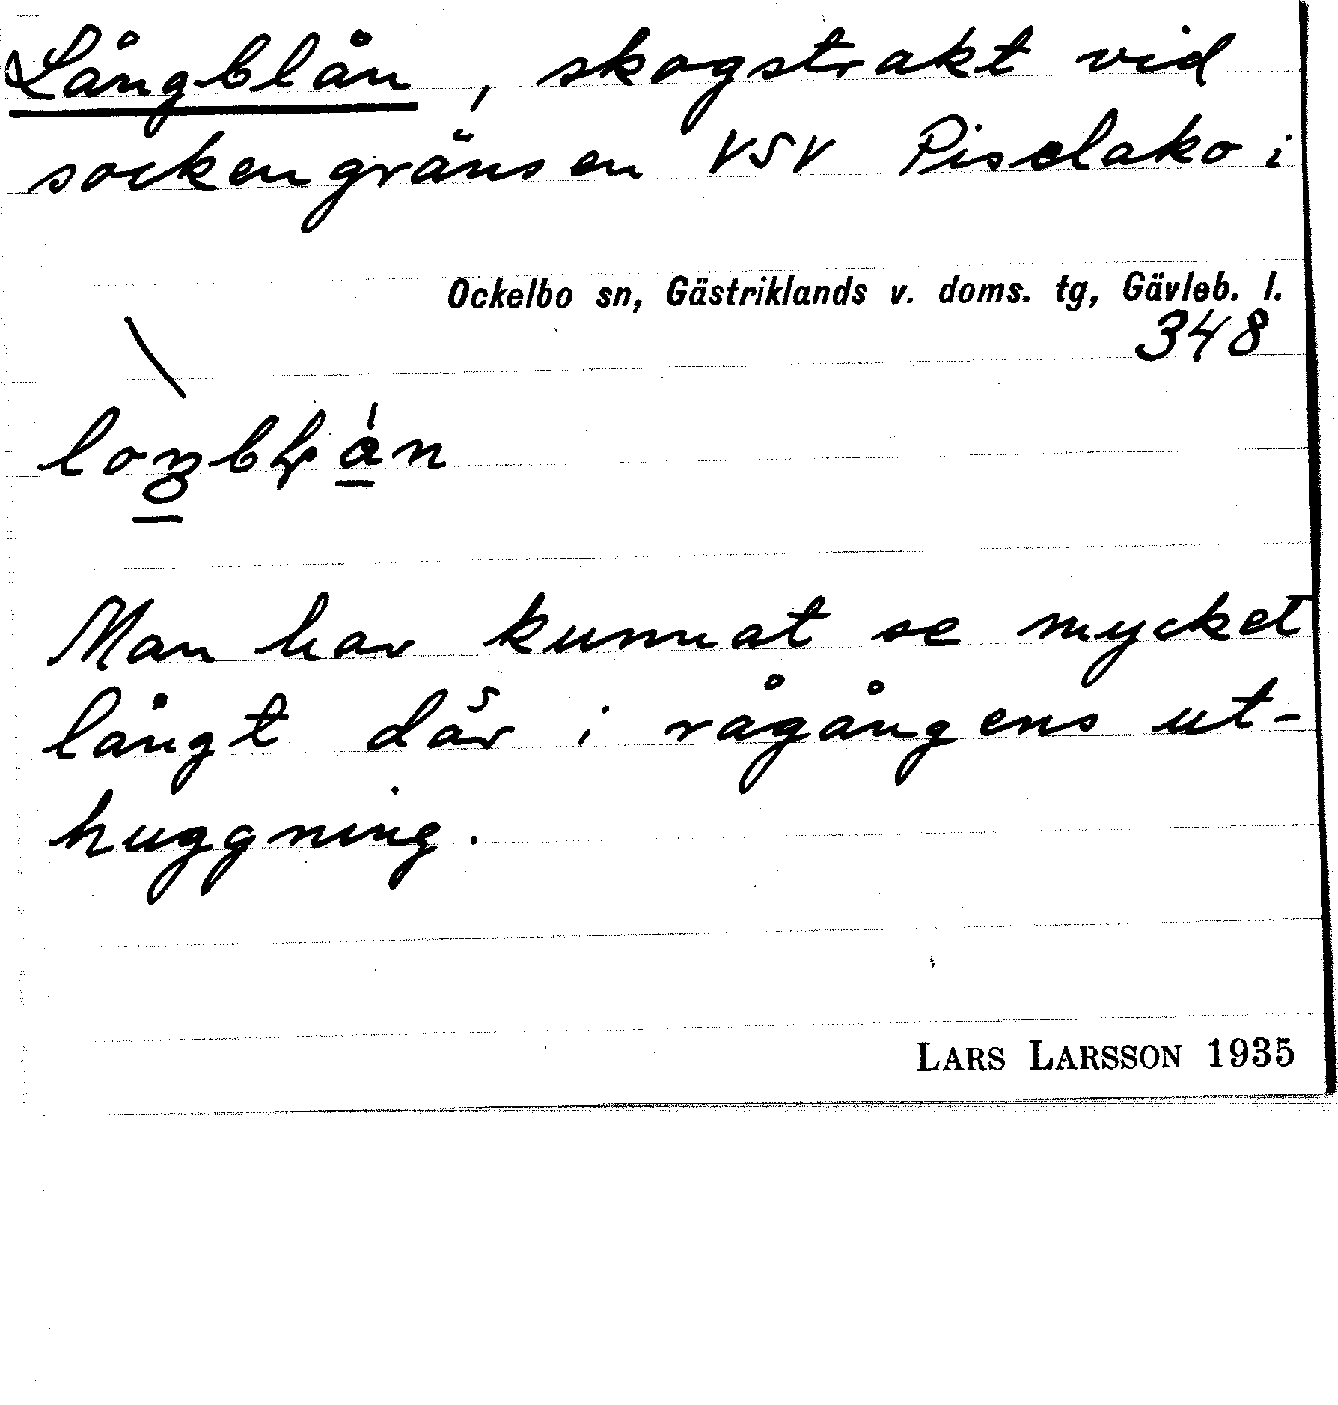 Långblån, skogstrakt vid
sockengränsen VSV Piselako i
Ockelbo sn, Gästriklands v. doms. tg, Gävleb. l.
348
Man har kunnat se mycket
långt där i rågångens ut-
huggning.
LARS LARSSON 1935